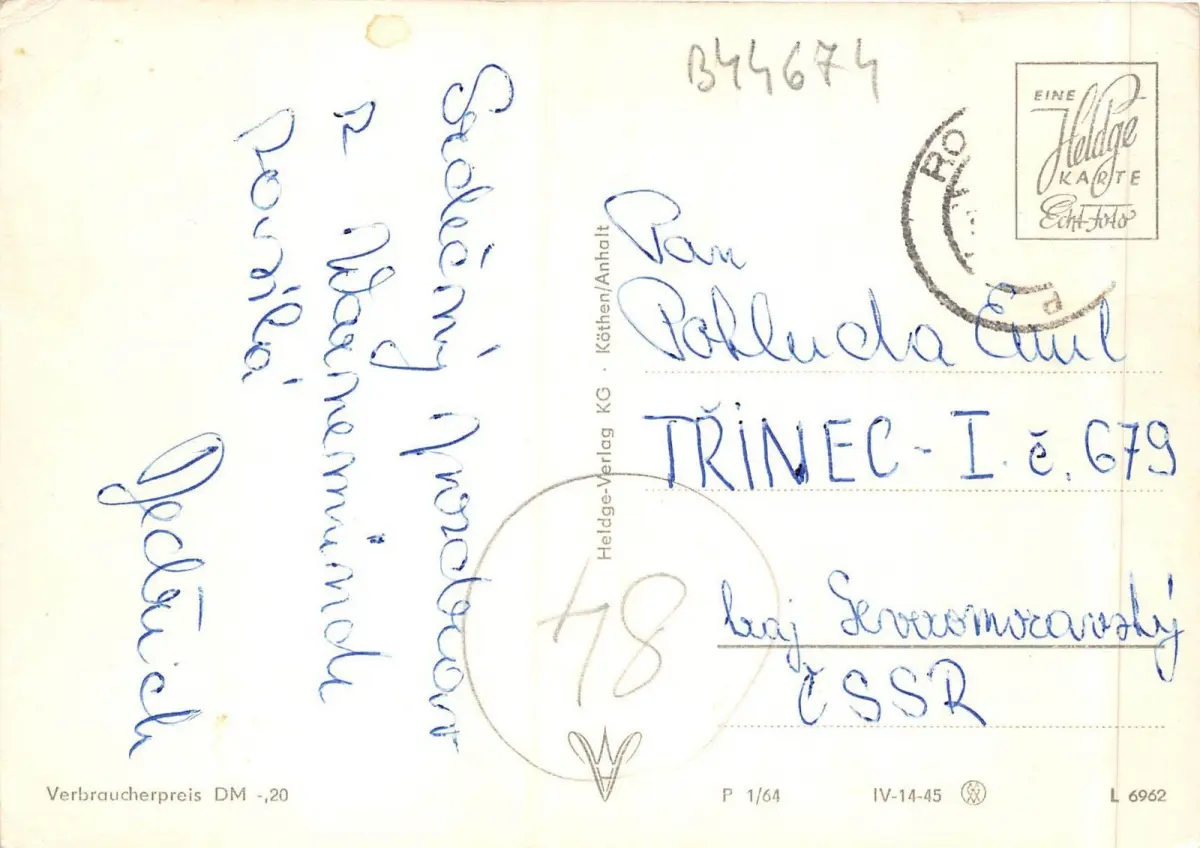 B44674
EINE
Heldge
KARTE
Echt-Foto
RO
a
Srdečný pozdrav
z Warnemünde
posílá
Jedřich
Heldge-Verlag KG · Köthen/Anhalt
Pan
Pohluda Emil
TŘINEC - I. č. 679
kraj Severomoravský
ČSSR
48
Verbraucherpreis DM -,20
P 1/64
IV-14-45
L 6962